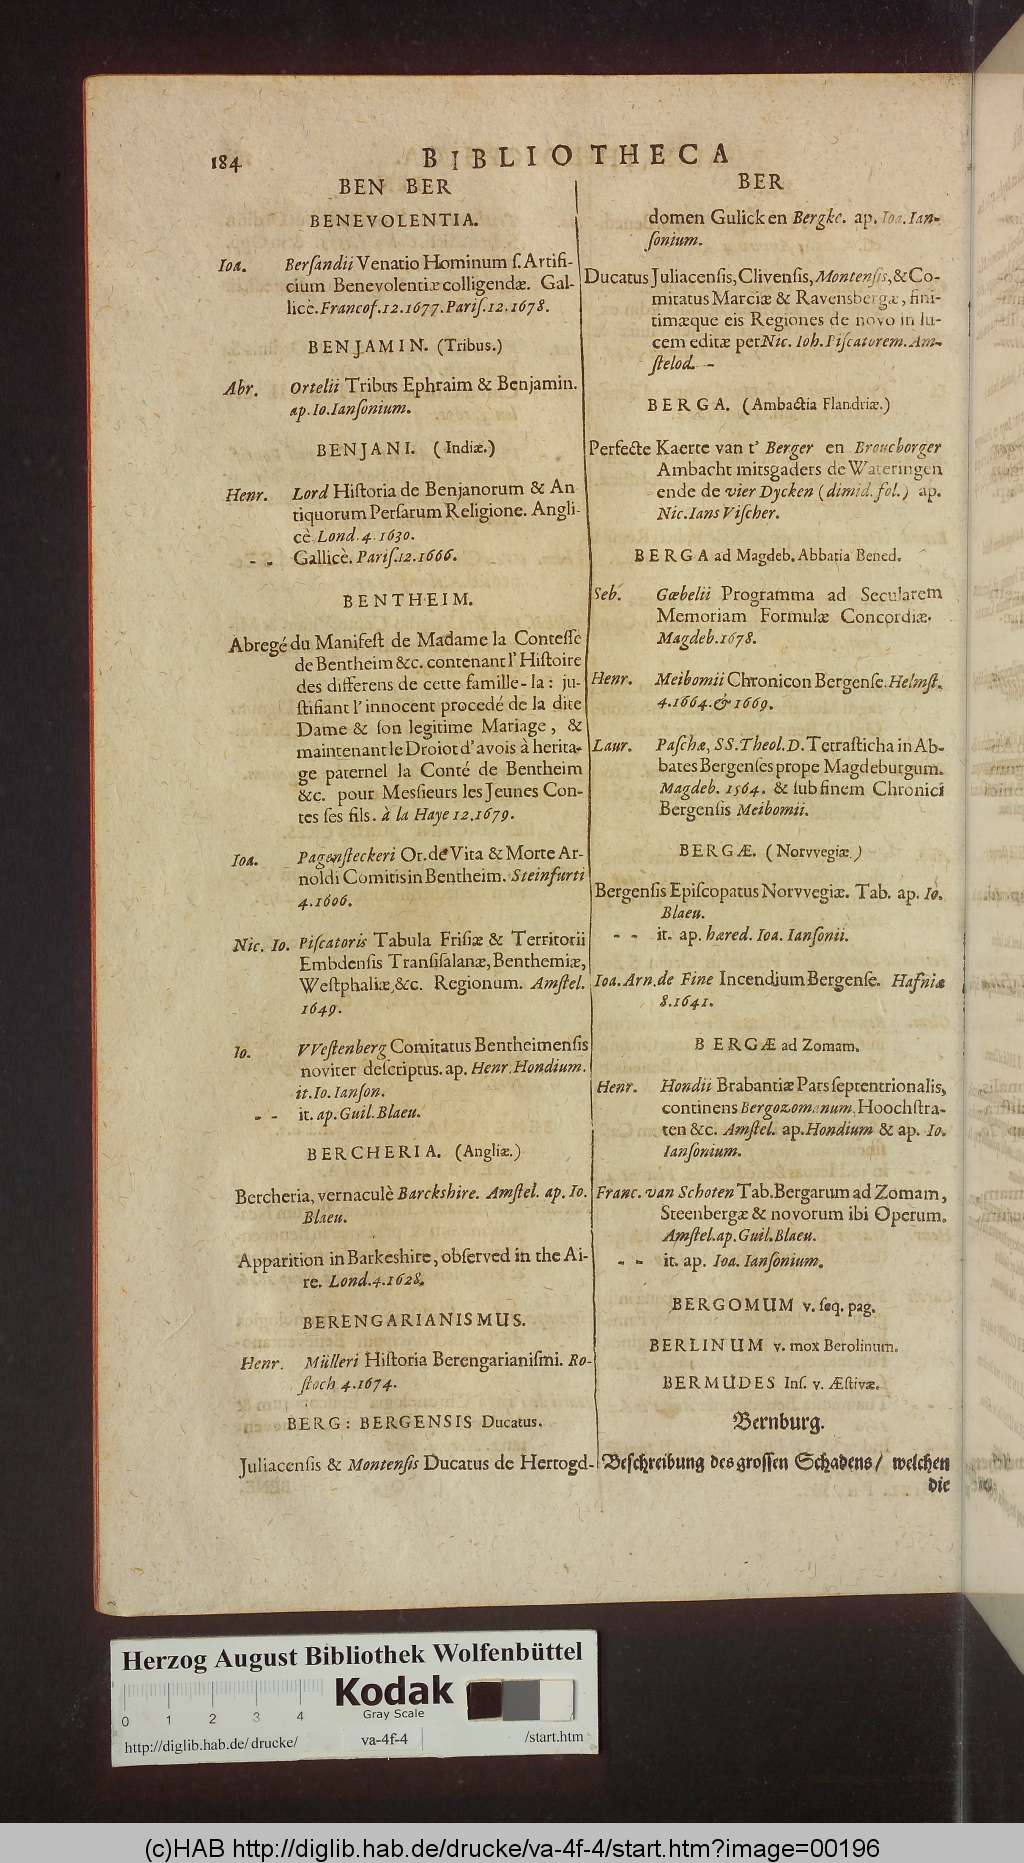 184
BIBLIOTHECA
BEN BER
BENEVOLENTIA.
Ioa. Berſandii Venatio Hominum ſ. Artifi-
cium Benevolentiæ colligendæ. Gal-
licè. Francof. 12. 1677. Pariſ. 12. 1678.
BENJAMIN. (Tribus.)
Abr. Ortelii Tribus Ephraim & Benjamin.
ap. Io. Ianſonium.
BENJANI. (Indiæ.)
Henr. Lord Hiſtoria de Benjanorum & An
tiquorum Perſarum Religione. Angli-
cè Lond. 4. 1630.
- - Gallicè. Pariſ. 12. 1666.
BENTHEIM.
Abregé du Manifeſt de Madame la Conteſſe
de Bentheim &c. contenant l' Hiſtoire
des differens de cette famille-la: ju-
ſtifiant l'innocent procedé de la dite
Dame & ſon legitime Mariage, &
maintenant le Droiot d'avois à herita-
ge paternel la Conté de Bentheim
&c. pour Meſsieurs les Jeunes Con-
tes ſes fils. à la Haye 12. 1679.
Ioa. Pagenſteckeri Or. de Vita & Morte Ar-
noldi Comitis in Bentheim. Steinfurti
4. 1606.
Nic. Io. Piſcatoris Tabula Friſiæ & Territorii
Embdenſis Tranſiſalanæ, Benthemiæ,
Weſtphaliæ, &c. Regionum. Amſtel.
1649.
Io. VVeſtenberg Comitatus Bentheimenſis
noviter deſcriptus. ap. Henr. Hondium.
it. Io. Ianſon.
- - it. ap. Guil. Blaeu.
BERCHERIA. (Angliæ.)
Bercheria, vernaculè Barckshire. Amſtel. ap. Io.
Blaeu.
Apparition in Barkeshire, obſerved in the Ai-
re. Lond. 4. 1628.
BERENGARIANISMUS.
Henr. Mülleri Hiſtoria Berengarianiſmi. Ro-
ſtoch 4. 1674.
BERG: BERGENSIS Ducatus.
Juliacenſis & Montenſis Ducatus de Hertogd-
BER
domen Gulick en Bergke. ap. Ioa. Ian-
ſonium.
Ducatus Juliacenſis, Clivenſis, Montenſis, & Co-
mitatus Marciæ & Ravensbergæ, fini-
timæque eis Regiones de novo in lu-
cem editæ per Nic. Ioh. Piſcatorem. Am-
ſtelod. -
BERGA. (Ambactia Flandriæ.)
Perfecte Kaerte van t' Berger en Broucborger
Ambacht mitsgaders de Wateringen
ende de vier Dycken (dimid. fol.) ap.
Nic. Ians Viſcher.
BERGA ad Magdeb. Abbatia Bened.
Seb. Gœbelii Programma ad Secularem
Memoriam Formulæ Concordiæ.
Magdeb. 1678.
Henr. Meibomii Chronicon Bergenſe. Helmſt.
4. 1664. & 1669.
Laur. Paſchæ, SS. Theol. D. Tetraſticha in Ab-
bates Bergenſes prope Magdeburgum.
Magdeb. 1564. & ſub finem Chronici
Bergenſis Meibomii.
BERGÆ. (Norvvegiæ)
Bergenſis Epiſcopatus Norvvegiæ. Tab. ap. Io.
Blaeu.
- - it. ap. hæred. Ioa. Ianſonii.
Ioa. Arn. de Fine Incendium Bergenſe. Hafniæ
8. 1641.
BERGÆ ad Zomam.
Henr. Hondii Brabantiæ Pars ſeptentrionalis,
continens Bergozomanum, Hoochſtra-
ten &c. Amſtel. ap. Hondium & ap. Io.
Ianſonium.
Franc. van Schoten Tab. Bergarum ad Zomam,
Steenbergæ & novorum ibi Operum.
Amſtel. ap. Guil. Blaeu.
- - it. ap. Ioa. Ianſonium.
BERGOMUM v. ſeq. pag.
BERLINUM v. mox Berolinum.
BERMUDES Inſ. v. Æſtivæ.
Bernburg.
Beſchreibung des groſſen Schadens / welchen
die
Herzog August Bibliothek Wolfenbüttel
Kodak
Gray Scale
0 1 2 3 4
http://diglib.hab.de/drucke/ va-4f-4 /start.htm
(c)HAB http://diglib.hab.de/drucke/va-4f-4/start.htm?image=00196